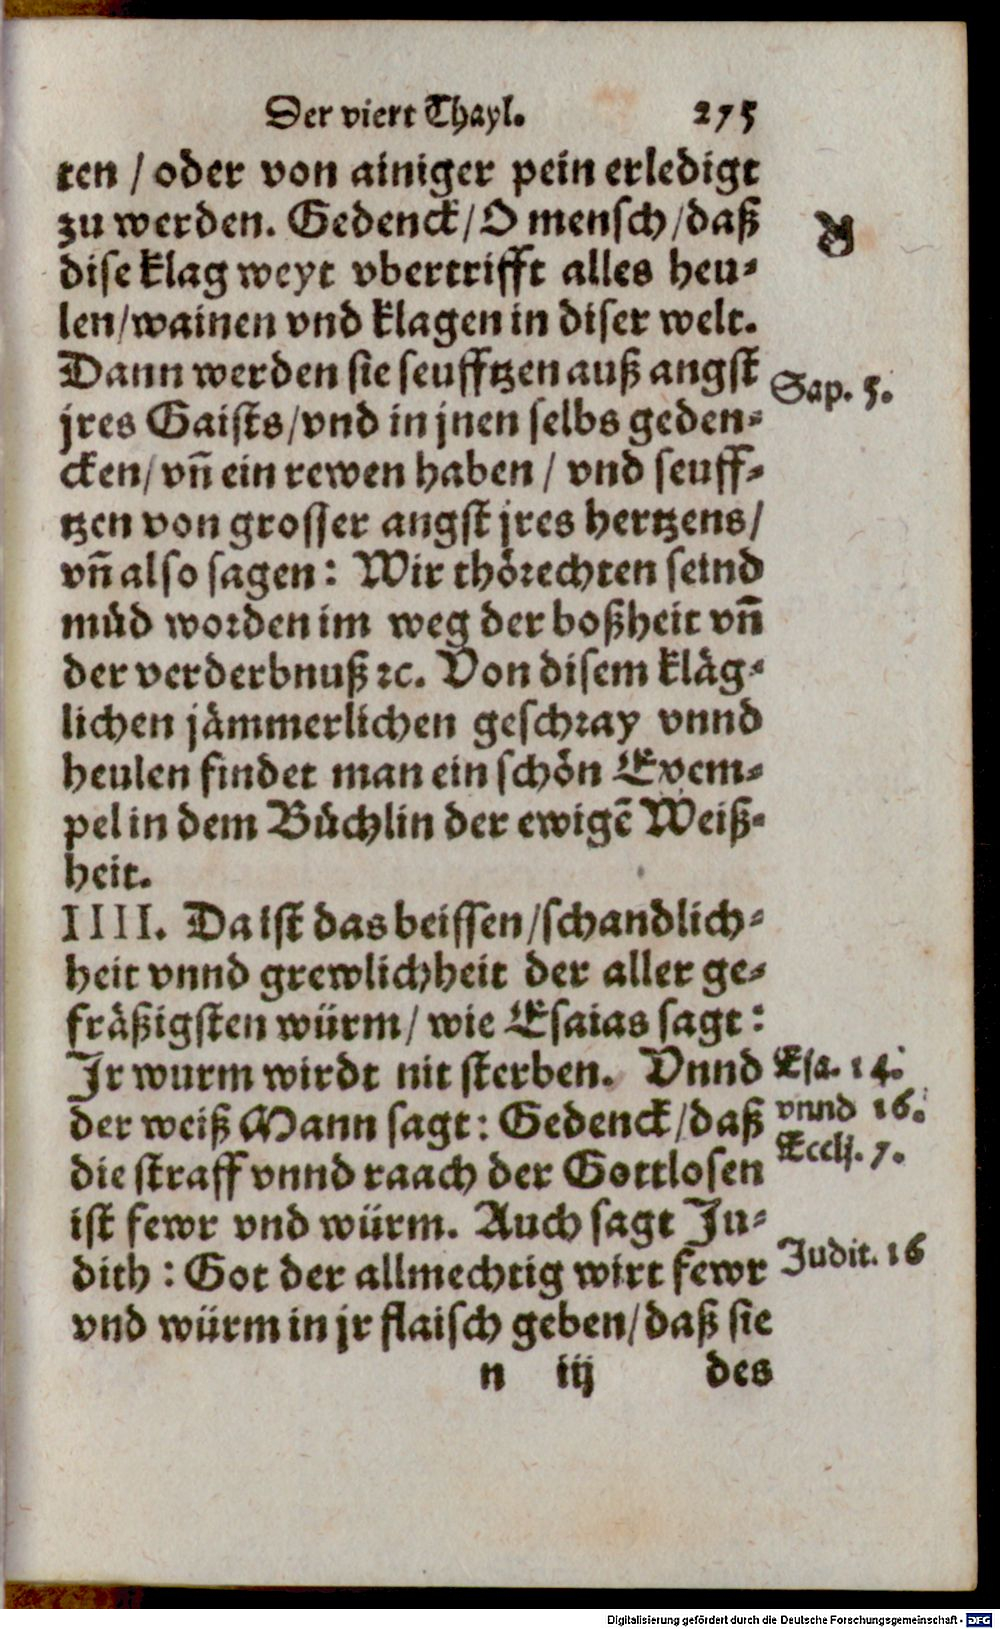 Der viert Thayl. 275
ten / oder von ainiger pein erledigt
zu werden. Gedenck/ O mensch/daß
dise klag weyt vbertrifft alles heu-
len/wainen vnd klagen in diser welt.
Dann werden sie seufftzen auß angst
Sap. 5.
jres Gaists/vnd in jnen selbs geden-
cken/ vñ ein rewen haben / vnd seuff-
tzen von grosser angst jres hertzens/
vñ also sagen: Wir thörechten seind
müd worden im weg der boßheit vñ
der verderbnuß ꝛc. Von disem kläg-
lichen jämmerlichen geschray vnnd
heulen findet man ein schön Exem-
pel in dem Büchlin der ewigẽ Weiß-
heit.
IIII. Da ist das beissen/schandlich-
heit vnnd grewlichheit der aller ge-
fräßigsten würm/ wie Esaias sagt:
Jr wurm wirdt nit sterben. Vnnd
Esa. 14.
der weiß Mann sagt: Gedenck/daß
vnnd 16.
Eccli. 7.
die straff vnnd raach der Gottlosen
ist fewr vnd würm. Auch sagt Ju-
dith : Got der allmechtig wirt fewr
Judit. 16
vnd würm in jr flaisch geben/daß sie
n iij des
Digitalisierung gefördert durch die Deutsche Forschungsgemeinschaft - DFG